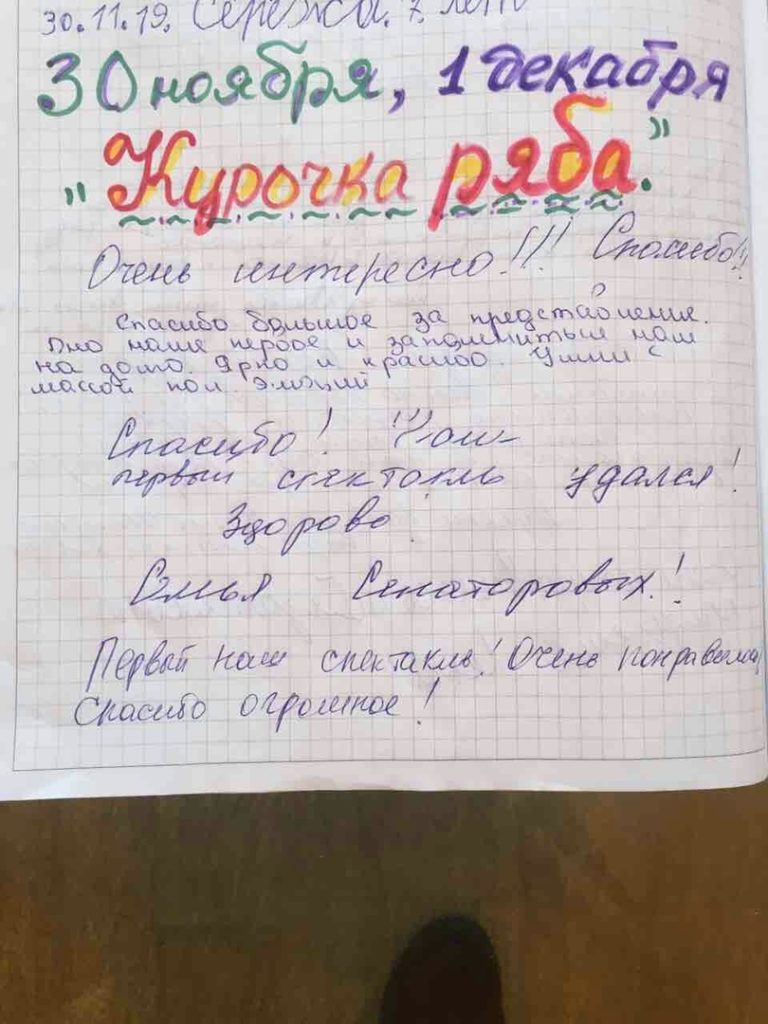 30.11.19. Сережа. 7 лет
30 ноября, 1 декабря
"Курочка ряба."
Очень интересно!!! Спасибо!!!
Спасибо большое за представления.
Оно наше первое и запомниться нам
на долго. Ярко и красиво. Ушли с
массой пол. эмоций
Спасибо! Наш
первый спектакль удался!
Здорово!
Семья Сенаторовых!
Первый наш спектакль! Очень понравилось,
Спасибо огромное!